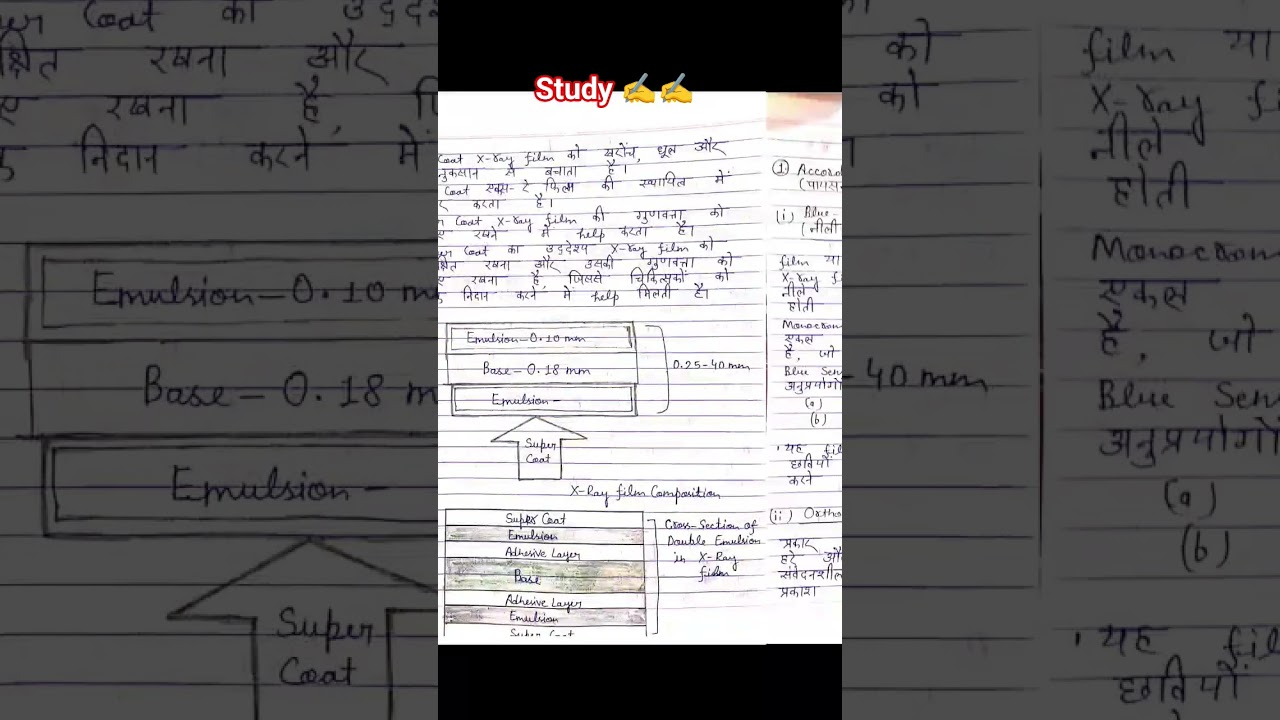 Study ✍️✍️
Coat X-ray film को खरोंच, धूल और
नुकसान से बचाता है।
Coat एक्स-रे फिल्म की स्थायित्व में
करता है।
Coat X-ray film की गुणवत्ता को
रखने में help करता है।
Coat का उद्देश्य X-ray film को
रखना और उसकी गुणवत्ता को
रखना है, जिससे चिकित्सकों को
निदान करने में help मिलती है।
Emulsion-0.10 mm
Base-0.18 mm
Emulsion-
0.25-40 mm
Super
Coat
X-Ray film Composition
Super Coat
Emulsion
Adhesive Layer
Base
Adhesive Layer
Emulsion
Super Coat
Cross-Section of
Double Emulsion
in X-Ray
film
① Accord
(i) Blue-
(नीली
film या
X-ray f
नीले
होती
Monocrom
एकल
है, जो
Blue Sen
अनुप्रयोगों
(a)
(b)
• यह fil
छवियों
करने
(ii) Ortho
प्रकार
हरे औ
संवेदनशील
प्रकाश